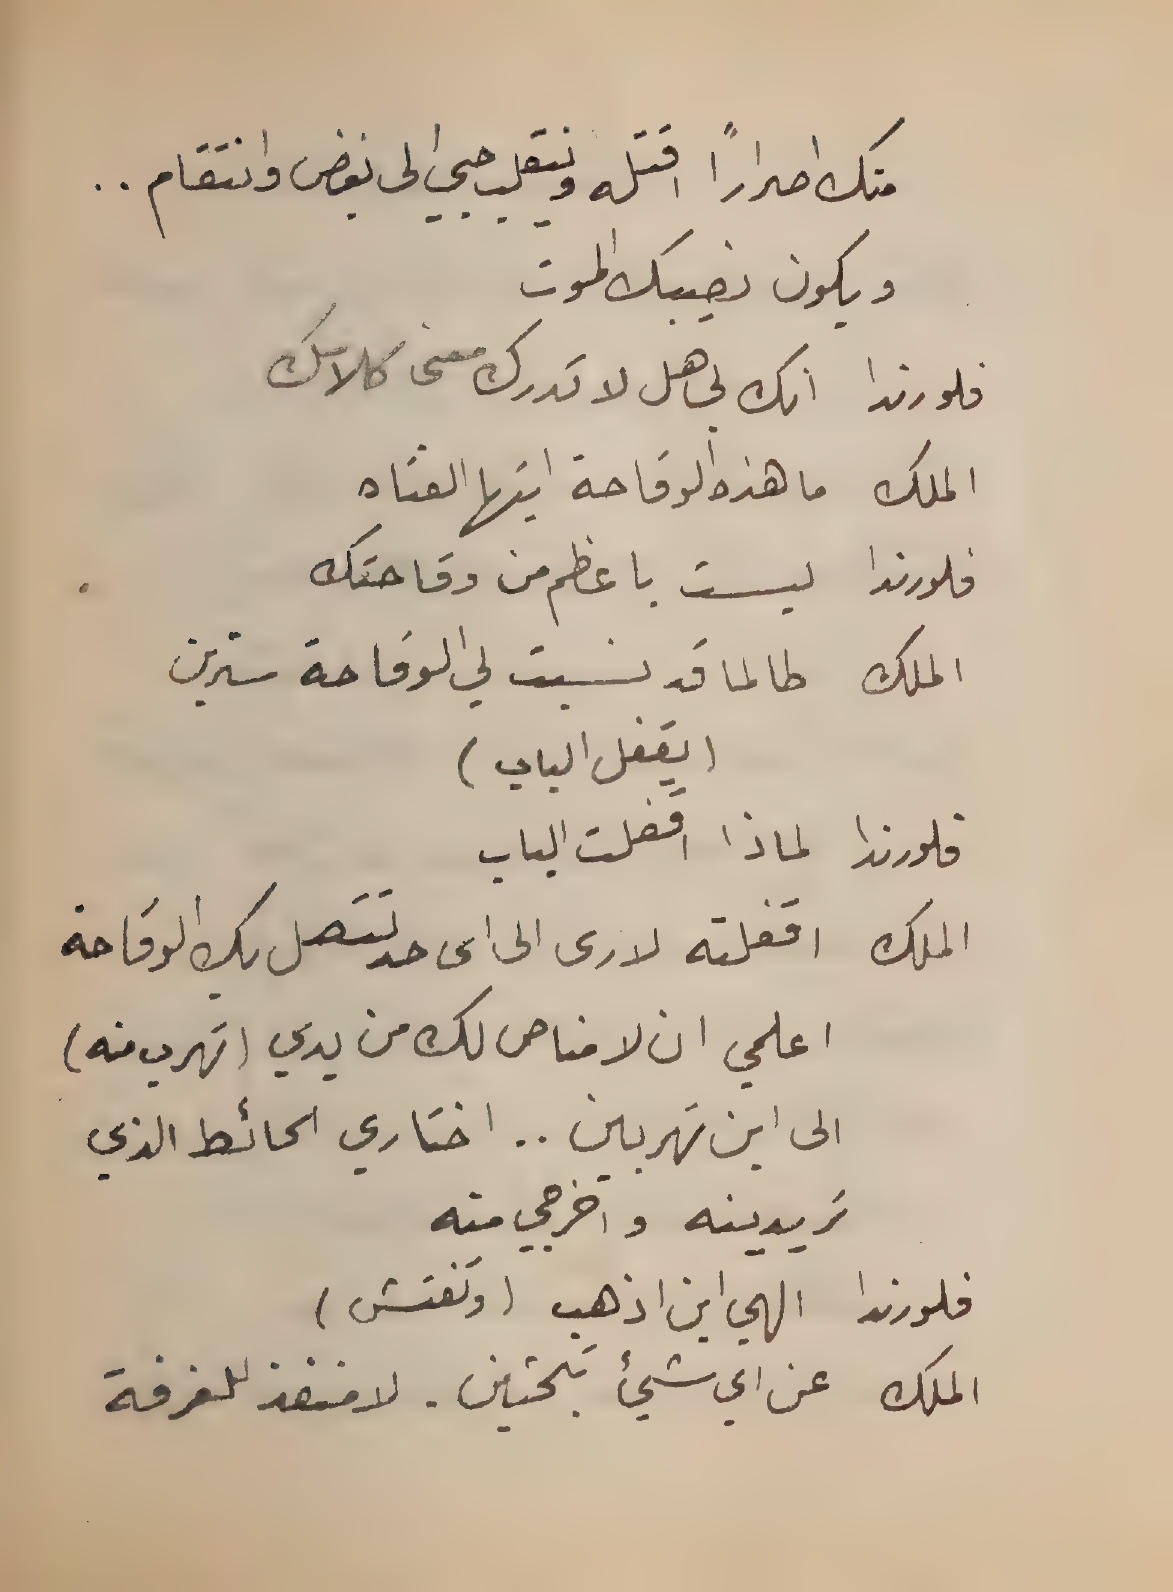 منك اصرارًا اقتله وينقلب حبي الى بغض وانتقام ..
ويكون نصيبك الموت
فلورندا انك لجاهل لا تدرك معنى كلامك
الملك ما هذه الوقاحة ايتها الفتاه
فلورندا ليست باعظم من وقاحتك
الملك طالما قد نسبت لي الوقاحة سترين
(يقفل الباب)
فلورندا لماذا اقفلت الباب
الملك اقفلته لارى الى اى حد تتصل بك الوقاحة
اعلمي ان لا مناص لك من يدي (تهرب منه)
الى اين تهربين .. اختاري الحائط الذي
تريدينه واخرجي منه
فلورندا الهي اين اذهب (وتفتش)
الملك عن اي شيئ تبحثين . لا منفذ للغرفة